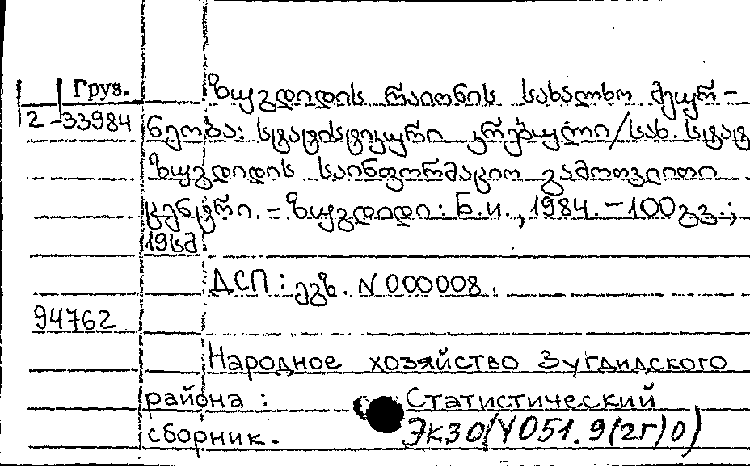 Груз.
2-33984
ზუგდიდის რაიონის სახალხო მეურ-
ნეობა: სტატისტიკური კრებული/სახ. სტატ
ზუგდიდის საინფორმაციო გამოთვლითი
ცენტრი. – ზუგდიდი: Б.и., 1984. – 100გვ.;
19სმ.
ДСП: ეგზ. N 000008.
94762
Народное хозяйство Зугдидского
района: Статистический
сборник. Экз0(У051.9(2г)0)